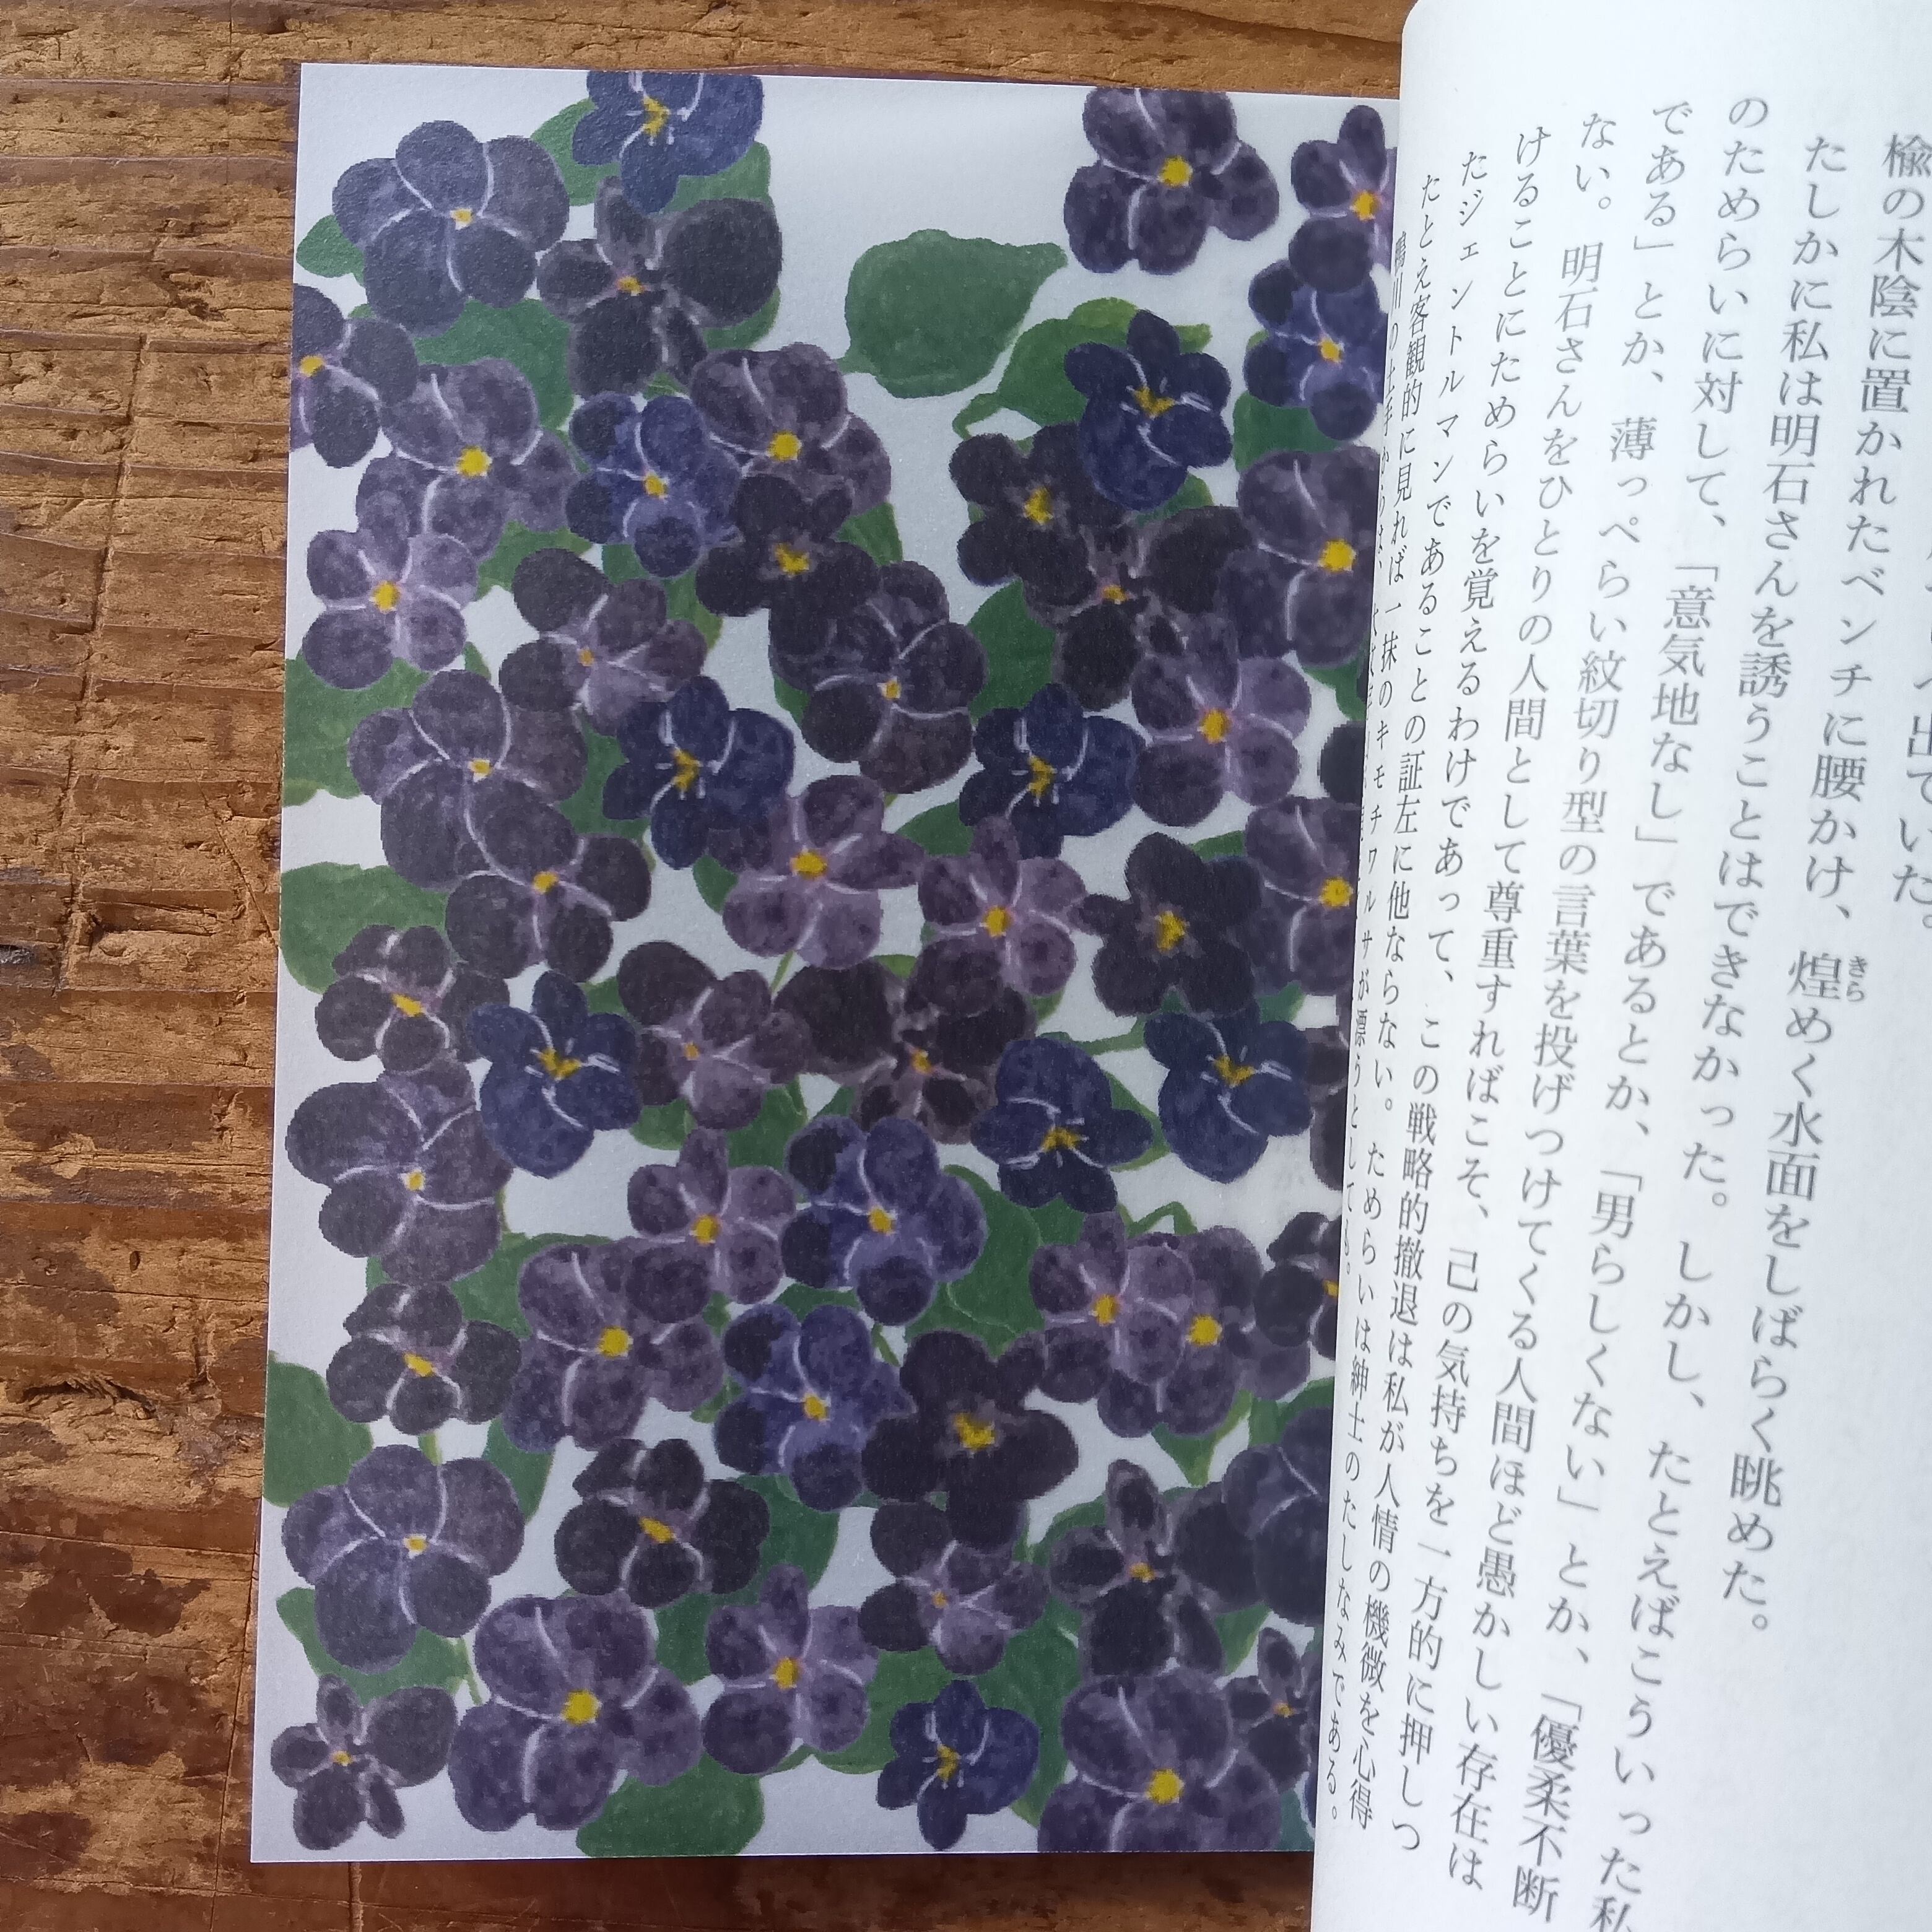 出ていた。
楡の木陰に置かれたベンチに腰かけ、煌めく水面をしばらく眺めた。
きら
たしかに私は明石さんを誘うことはできなかった。しかし、たとえばこういった私
のためらいに対して、「意気地なし」であるとか、「男らしくない」とか、「優柔不断
である」とか、薄っぺらい紋切り型の言葉を投げつけてくる人間ほど愚かしい存在は
ない。明石さんをひとりの人間として尊重すればこそ、己の気持ちを一方的に押しつ
けることにためらいを覚えるわけであって、この戦略的撤退は私が人情の機微を心得
たジェントルマンであることの証左に他ならない。ためらいは紳士のたしなみである。
たとえ客観的に見れば一抹のキモチワルサが漂うとしても。
鴨川の土手